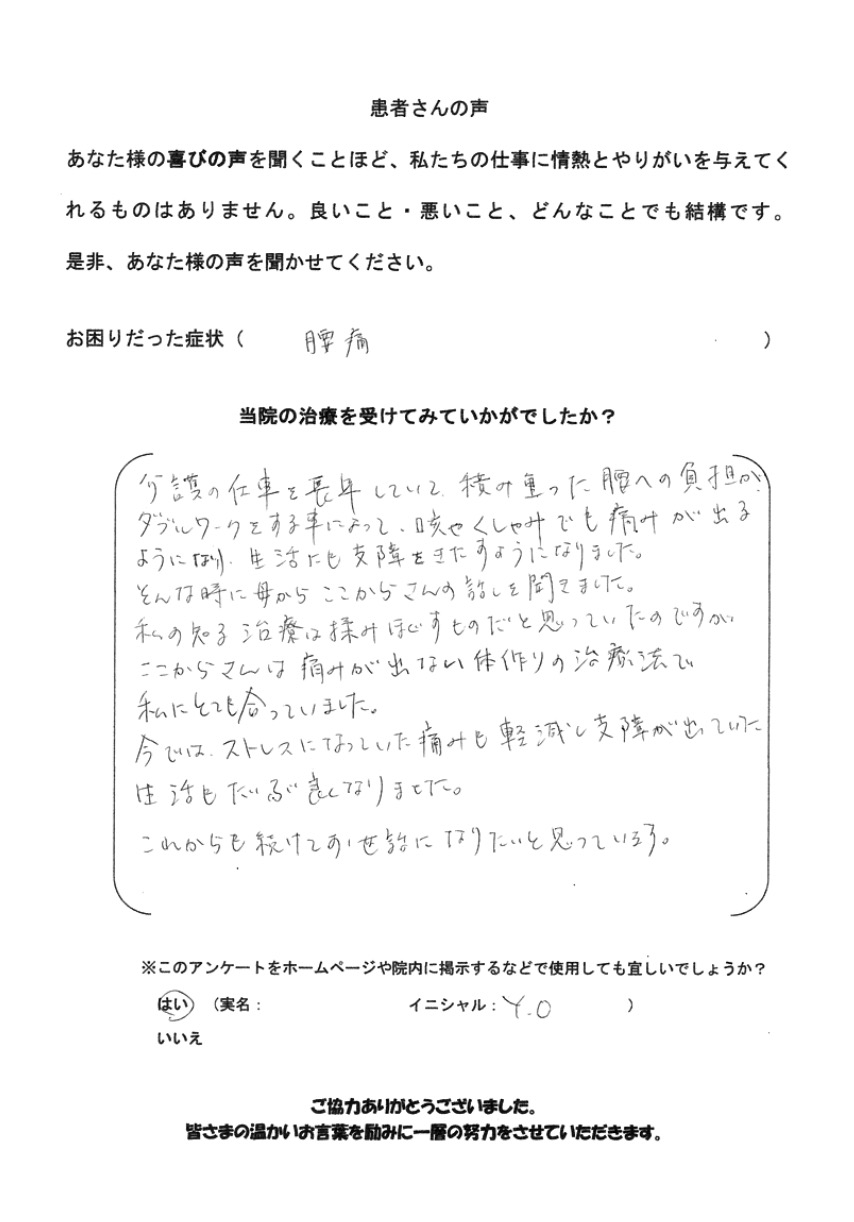 患者さんの声
あなた様の喜びの声を聞くことほど、私たちの仕事に情熱とやりがいを与えてく
れるものはありません。良いこと・悪いこと、どんなことでも結構です。
是非、あなた様の声を聞かせてください。
お困りだった症状（ 腰痛 ）
当院の治療を受けてみていかがでしたか？
介護の仕事を長年していて、積み重った腰への負担が、
ダブルワークをする事によって、咳やくしゃみでも痛みが出る
ようになり、生活にも支障をきたすようになりました。
そんな時に母からここからさんの話しを聞きました。
私の知る治療は揉みほぐすものだと思っていたのですが
ここからさんは痛みが出ない体作りの治療法で
私にとても合っていました。
今では、ストレスになっていた痛みも軽減し支障が出ていた
生活もだいぶ良くなりました。
これからも続けてお世話になりたいと思っています。
※このアンケートをホームページや院内に掲示するなどで使用しても宜しいでしょうか？
はい （実名： イニシャル：Y.O ）
いいえ
ご協力ありがとうございました。
皆さまの温かいお言葉を励みに一層の努力をさせていただきます。